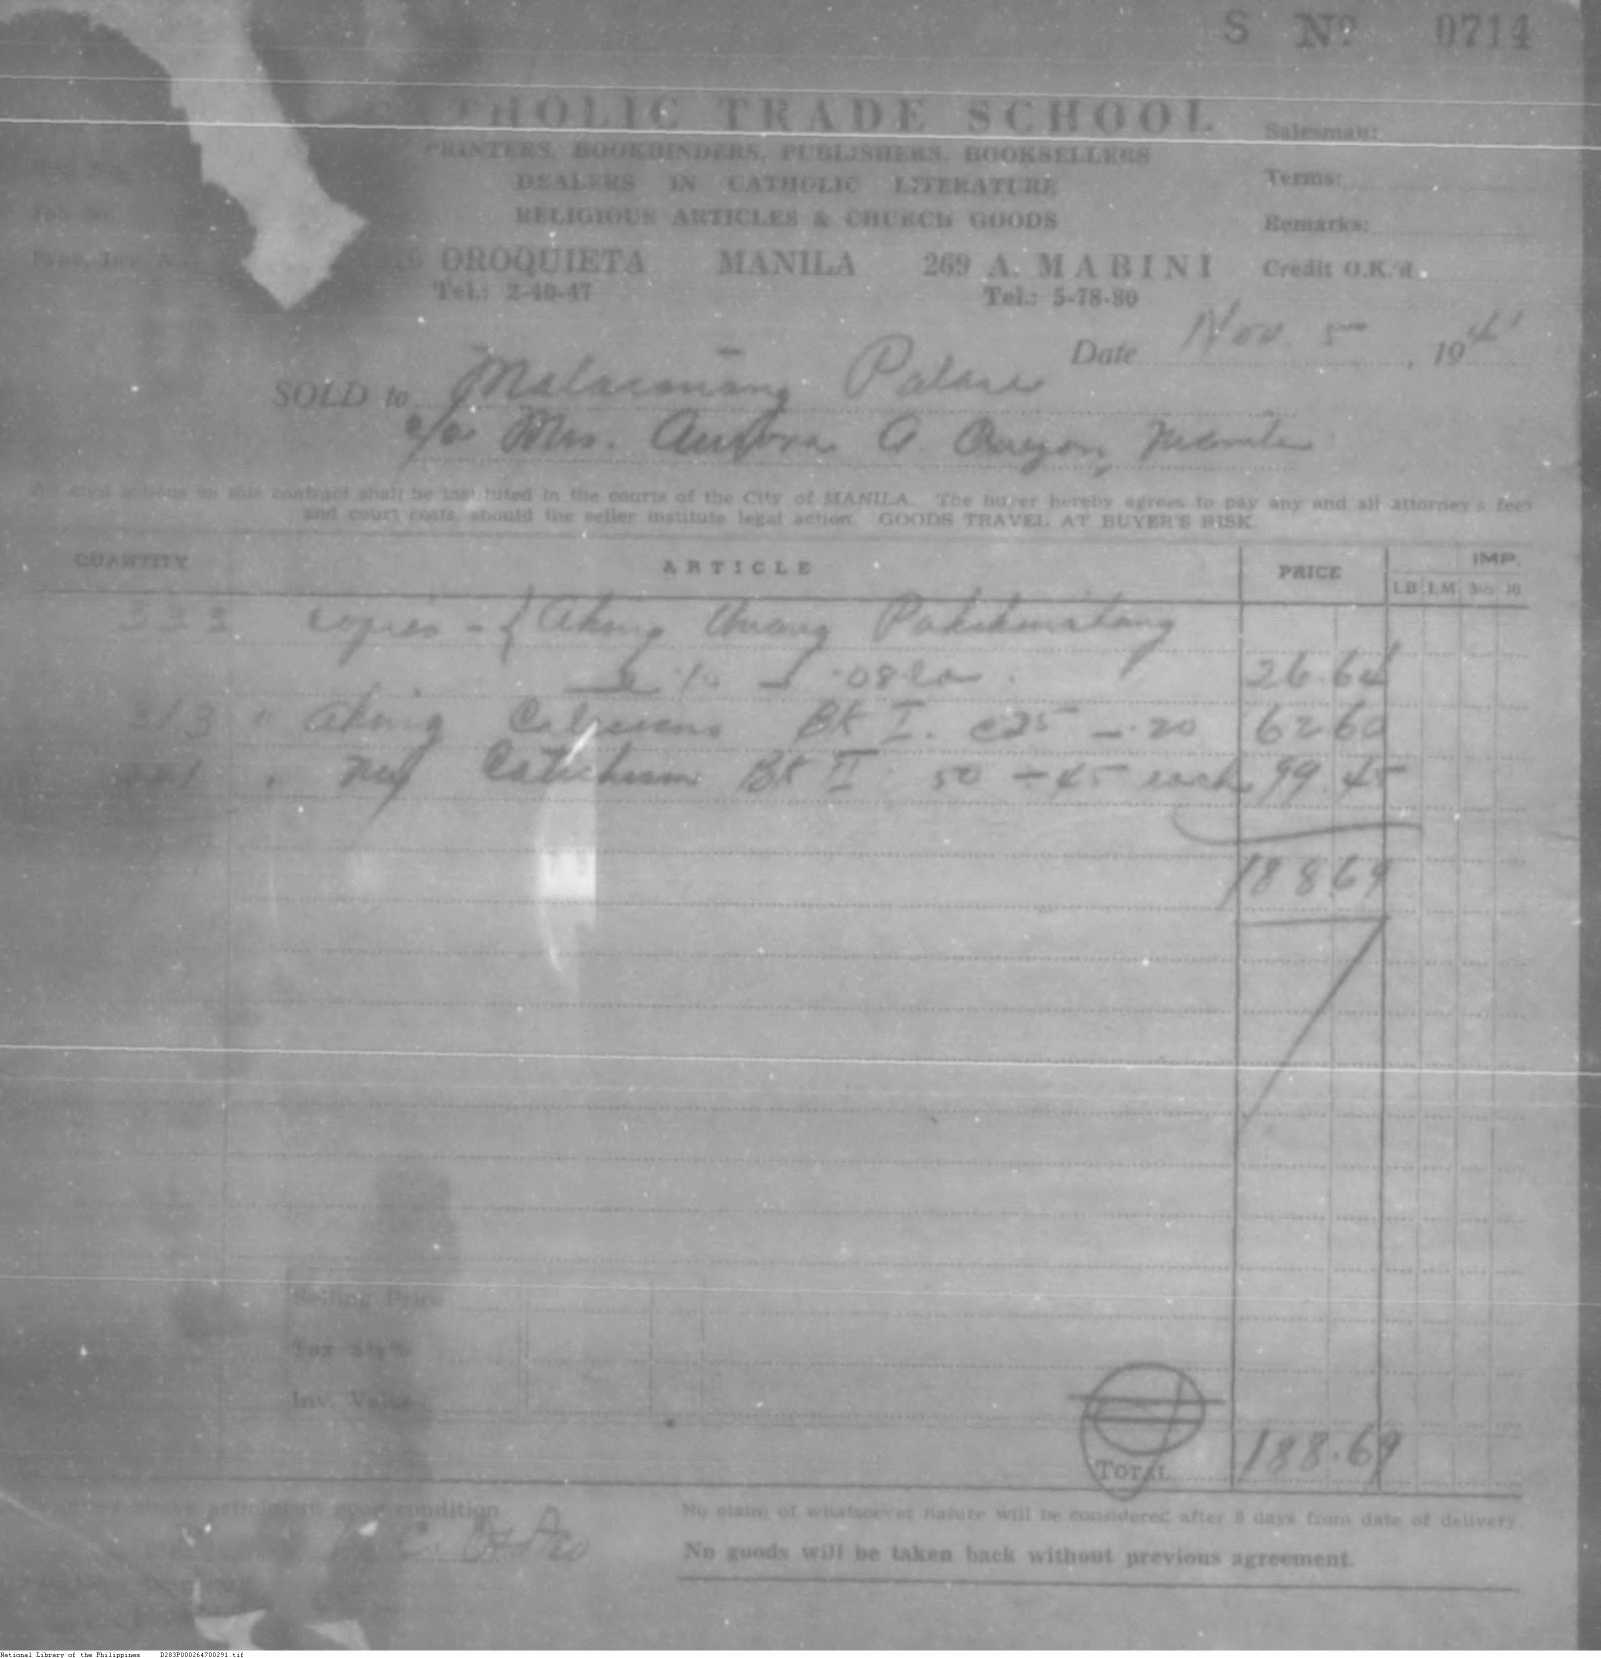 S Nº 0714
CATHOLIC TRADE SCHOOL
PRINTERS, BOOKBINDERS, PUBLISHERS, BOOKSELLERS
DEALERS IN CATHOLIC LITERATURE
RELIGIOUS ARTICLES & CHURCH GOODS
OROQUIETA MANILA 269 A. MABINI
Tel.: 2-40-47 Tel.: 5-78-80
Salesman:
Terms:
Remarks:
Credit O.K.'d
Job No.
Date Nov. 5 , 194
SOLD to Malacañang Palace
c/o Mrs. Aurora A. Quezon, Manila
All civil actions on this contract shall be instituted in the courts of the City of MANILA. The buyer hereby agrees to pay any and all attorney's fees
and court costs, should the seller institute legal action. GOODS TRAVEL AT BUYER'S RISK.
QUANTITY ARTICLE PRICE IMP.
333 copies - { Aking
.10 .08 ea. 26.64
313 " Aking BK I. .25 - .20 62.60
221 " My Catechism BK II .50 - .45 each 99.45
188.69
Selling Price
Tax
Inv. Value
TOTAL 188.69
upon condition
No claim of whatsoever nature will be considered after 8 days from date of delivery.
No goods will be taken back without previous agreement.
National Library of the Philippines D283P000264700291.tif